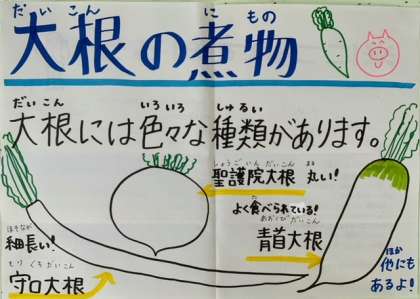 だいこん に もの
大根の煮物
だいこん いろいろ しゅるい
大根には色々な種類があります。
しょうごいんだいこん まる
聖護院大根 丸い!
よく食べられている!
あおくびだいこん
青首大根
ほそなが
細長い!
もりぐちだいこん
守口大根
ほか
他にも
あるよ!